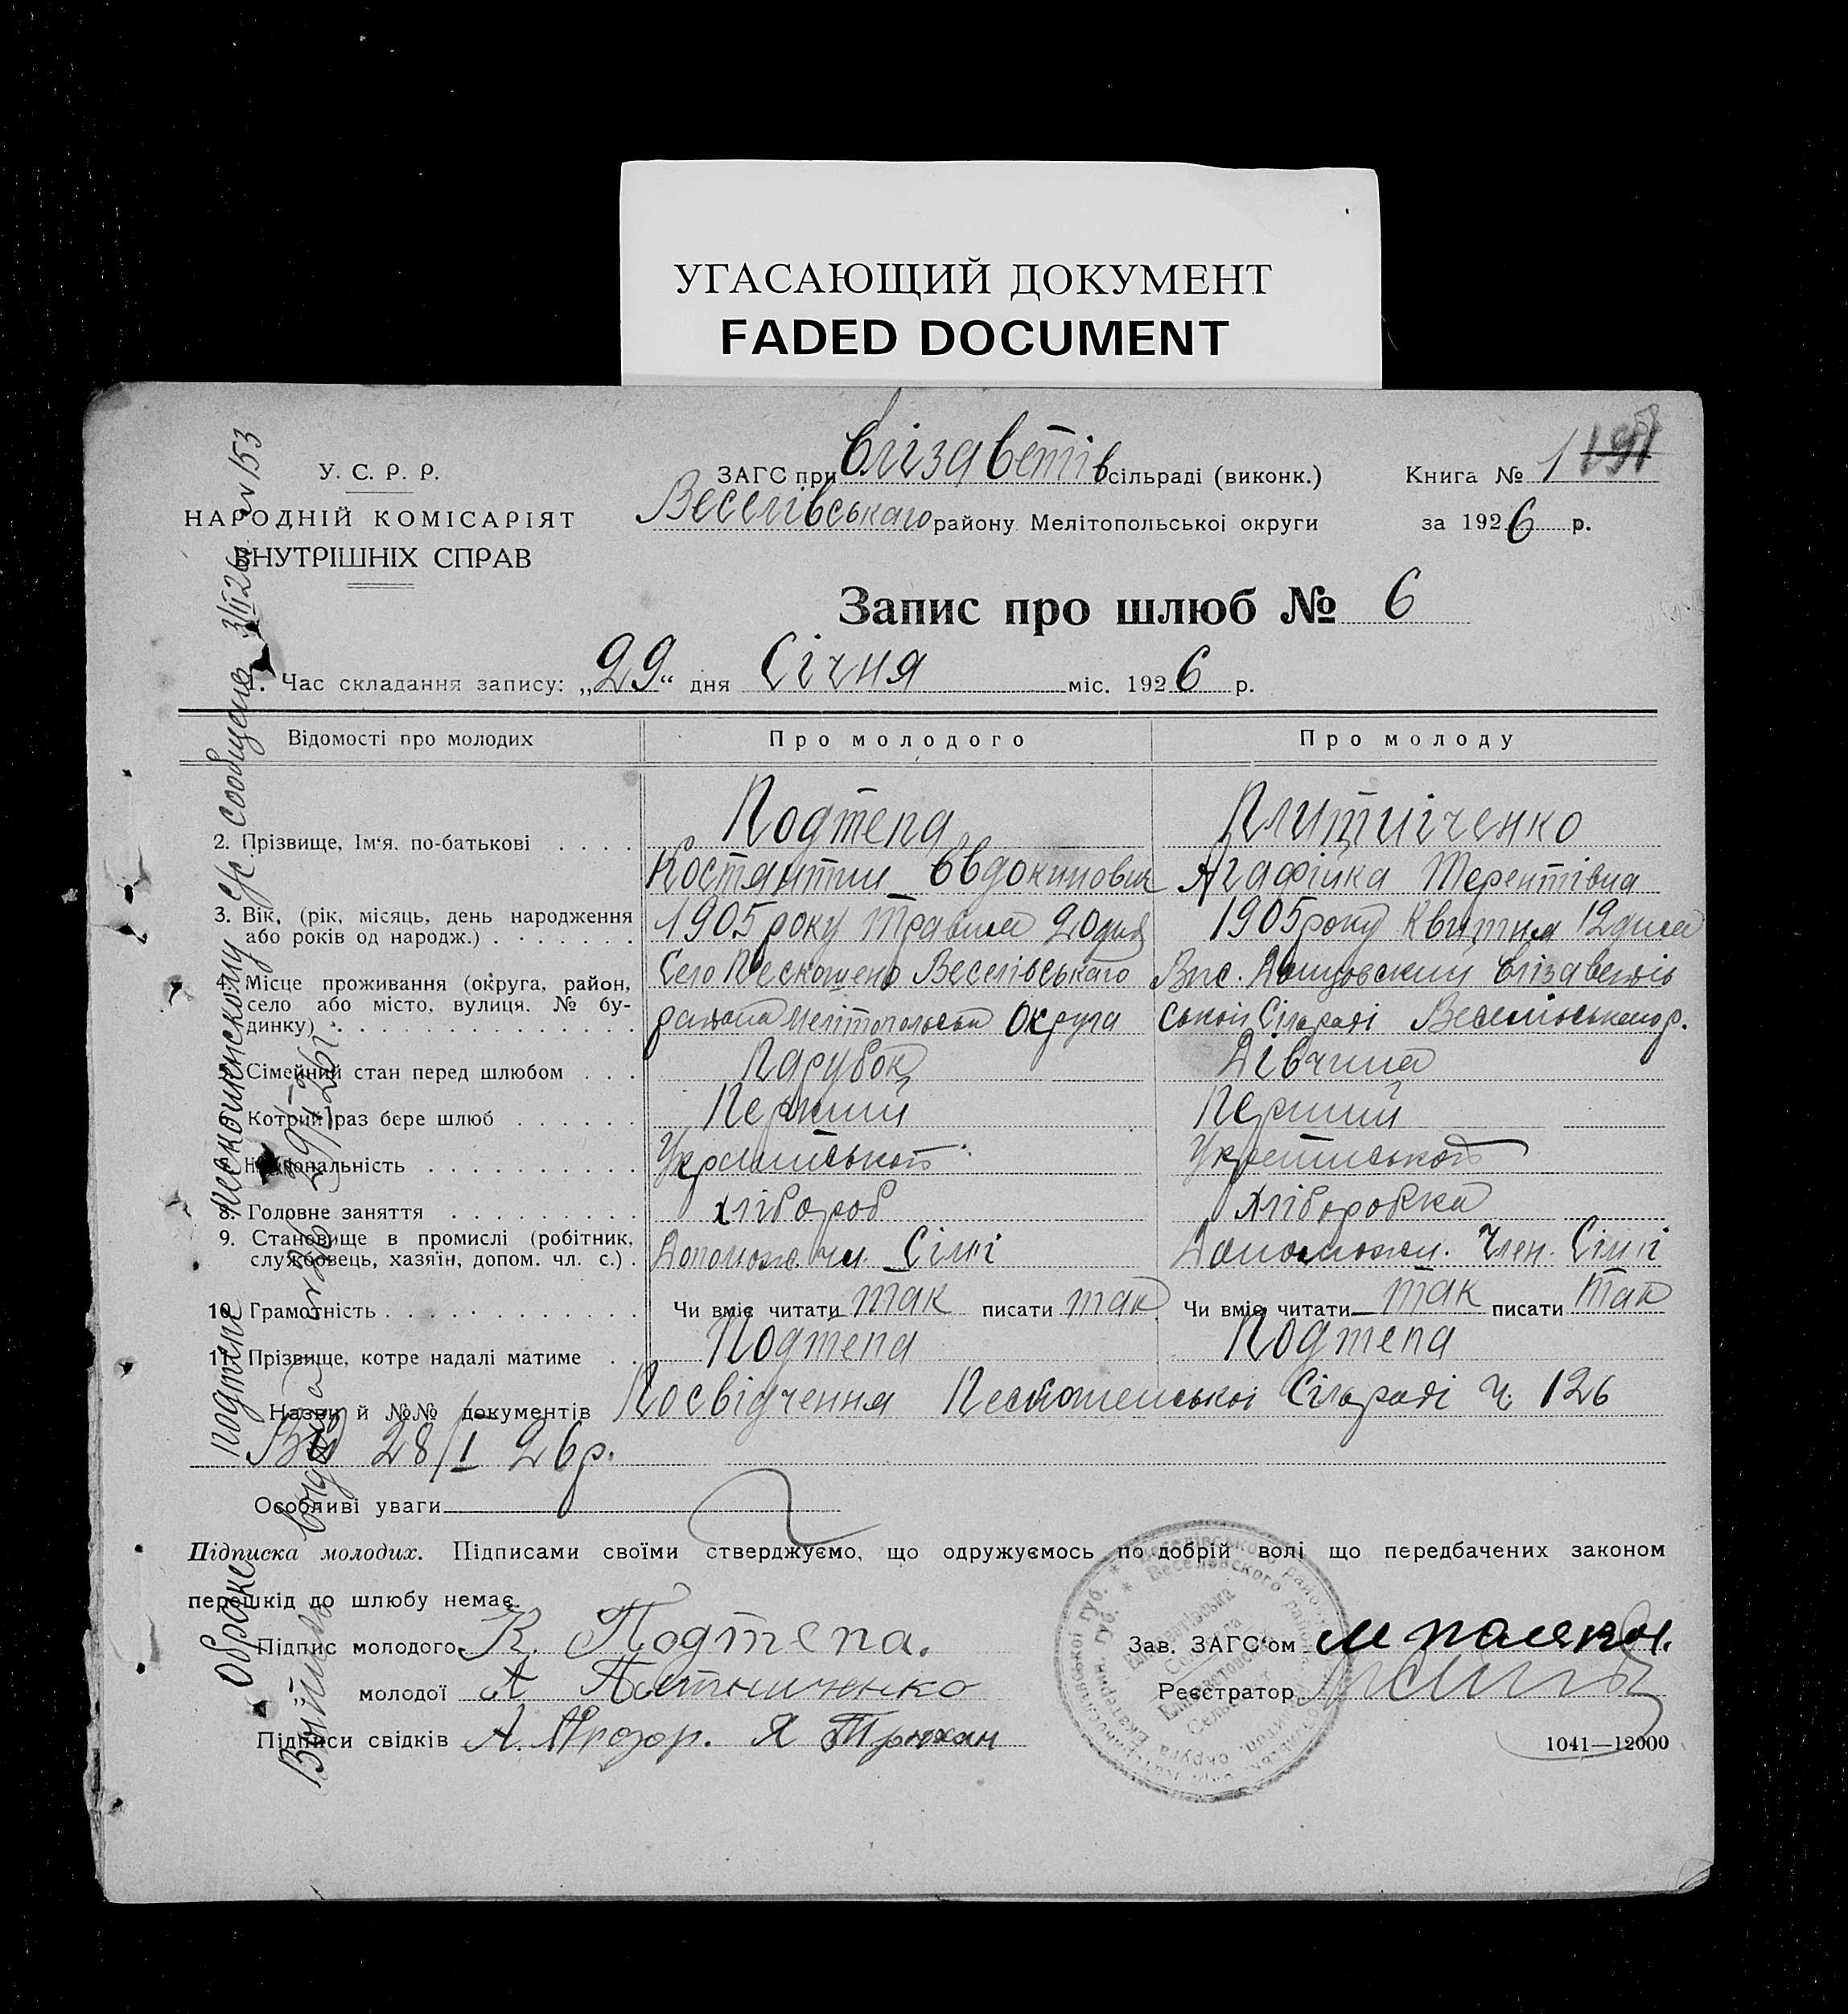 УГАСАЮЩИЙ ДОКУМЕНТ
FADED DOCUMENT
У. С. Р. Р.
НАРОДНІЙ КОМІСАРІЯТ
ВНУТРІШНІХ СПРАВ
ЗАГС при Єлізаветів сільраді (виконк.)
Веселівськаго району Мелітопольської округи
Книга № 1 191
за 1926 р.
Запис про шлюб № 6
1. Час складання запису: „29" дня Січня міс. 1926 р.
Відомості про молодих
Про молодого
Про молоду
2. Прізвище, Ім'я, по-батькові . . . .
Подтепа
Костянтин Євдокимович
Агафійка Терентівна
3. Вік, (рік, місяць, день народження або років од народж.) . . . . . . .
1905 року Травня 20 дня
1905 року Квитня 12 дня
4. Місце проживання (округа, район, село або місто, вулиця, № будинку) . . . . . . . . . . . . . .
Село Нескошено Веселівськаго
района Мелітопольська Округа
Єлізаветів
ськой Сілраді Веселівського р.
Сімейний стан перед шлюбом . . .
Парубок
Дівчина
Котрий раз бере шлюб . . . . . .
Перший
Перший
Національність . . . . . . . . . .
Українськой
Українськой
8. Головне заняття . . . . . . . . .
хлібороб
Хліборобка
9. Становище в промислі (робітник, службовець, хазяїн, допом. чл. с.) .
Допомож. чл. Сімї
Допоможн. Член. Сімї
10. Грамотність . . . . . . . . . . . . .
Чи вміє читати так писати так
Чи вміє читати так писати так
11. Прізвище, котре надалі матиме . .
Подтепа
Подтепа
Назви й №№ документів Посвідчення Сілраді ч. 126
Від 28/I 26р.
Особливі уваги
Підписка молодих. Підписами своїми стверджуємо, що одружуємось по добрій волі що передбачених законом
перешкід до шлюбу немає.
Підпис молодого К. Подтепа.
молодої А
Підписи свідків А. Я Трюхан
Зав. ЗАГС'ом
Реєстратор
1041—12000
сообщено 3/II 26 №153